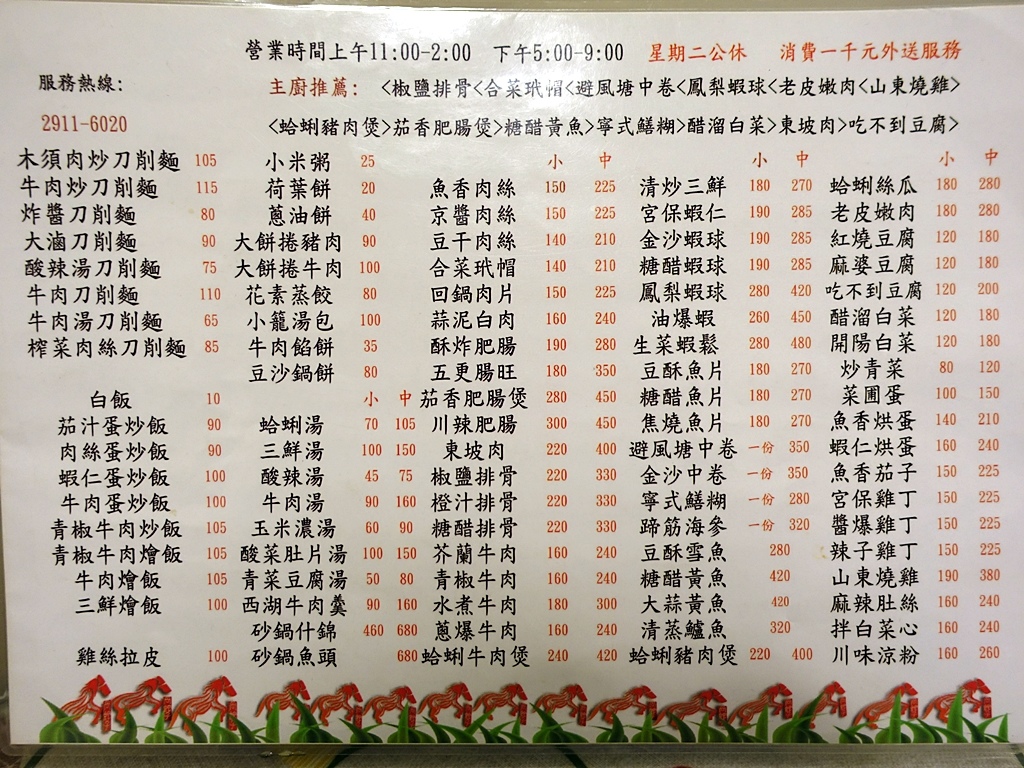 營業時間上午11:00-2:00 下午5:00-9:00 星期二公休 消費一千元外送服務
服務熱線: 主廚推薦: <椒鹽排骨<合菜玳帽<避風塘中卷<鳳梨蝦球<老皮嫩肉<山東燒雞>
2911-6020 <蛤蜊豬肉煲>茄香肥腸煲>糖醋黃魚>寧式鱔糊>醋溜白菜>東坡肉>吃不到豆腐>
木須肉炒刀削麵 105 小米粥 25 小 中 小 中 小 中
牛肉炒刀削麵 115 荷葉餅 20 魚香肉絲 150 225 清炒三鮮 180 270 蛤蜊絲瓜 180 280
炸醬刀削麵 80 蔥油餅 40 京醬肉絲 150 225 宮保蝦仁 190 285 老皮嫩肉 180 280
大滷刀削麵 90 大餅捲豬肉 90 豆干肉絲 140 210 金沙蝦球 190 285 紅燒豆腐 120 180
酸辣湯刀削麵 75 大餅捲牛肉 100 合菜玳帽 140 210 糖醋蝦球 190 285 麻婆豆腐 120 180
牛肉刀削麵 110 花素蒸餃 80 回鍋肉片 150 225 鳳梨蝦球 280 420 吃不到豆腐 120 200
牛肉湯刀削麵 65 小籠湯包 100 蒜泥白肉 160 240 油爆蝦 260 450 醋溜白菜 120 180
榨菜肉絲刀削麵 85 牛肉餡餅 35 酥炸肥腸 190 280 生菜蝦鬆 280 480 開陽白菜 120 180
豆沙鍋餅 80 五更腸旺 180 350 豆酥魚片 180 270 炒青菜 80 120
白飯 10 小 中 茄香肥腸煲 280 450 糖醋魚片 180 270 菜圃蛋 100 150
茄汁蛋炒飯 90 蛤蜊湯 70 105 川辣肥腸 300 450 焦燒魚片 180 270 魚香烘蛋 140 210
肉絲蛋炒飯 90 三鮮湯 100 150 東坡肉 220 400 避風塘中卷 一份 350 蝦仁烘蛋 160 240
蝦仁蛋炒飯 100 酸辣湯 45 75 椒鹽排骨 220 330 金沙中卷 一份 350 魚香茄子 150 225
牛肉蛋炒飯 100 牛肉湯 90 160 橙汁排骨 220 330 寧式鱔糊 一份 280 宮保雞丁 150 225
青椒牛肉炒飯 105 玉米濃湯 60 90 糖醋排骨 220 330 蹄筋海參 一份 320 醬爆雞丁 150 225
青椒牛肉燴飯 105 酸菜肚片湯 100 150 芥蘭牛肉 160 240 豆酥雪魚 280 辣子雞丁 150 225
牛肉燴飯 105 青菜豆腐湯 50 80 青椒牛肉 160 240 糖醋黃魚 420 山東燒雞 190 380
三鮮燴飯 100 西湖牛肉羹 90 160 水煮牛肉 180 300 大蒜黃魚 420 麻辣肚絲 160 240
砂鍋什錦 460 680 蔥爆牛肉 160 240 清蒸鱸魚 320 拌白菜心 160 240
雞絲拉皮 100 砂鍋魚頭 680 蛤蜊牛肉煲 240 420 蛤蜊豬肉煲 220 400 川味涼粉 160 260